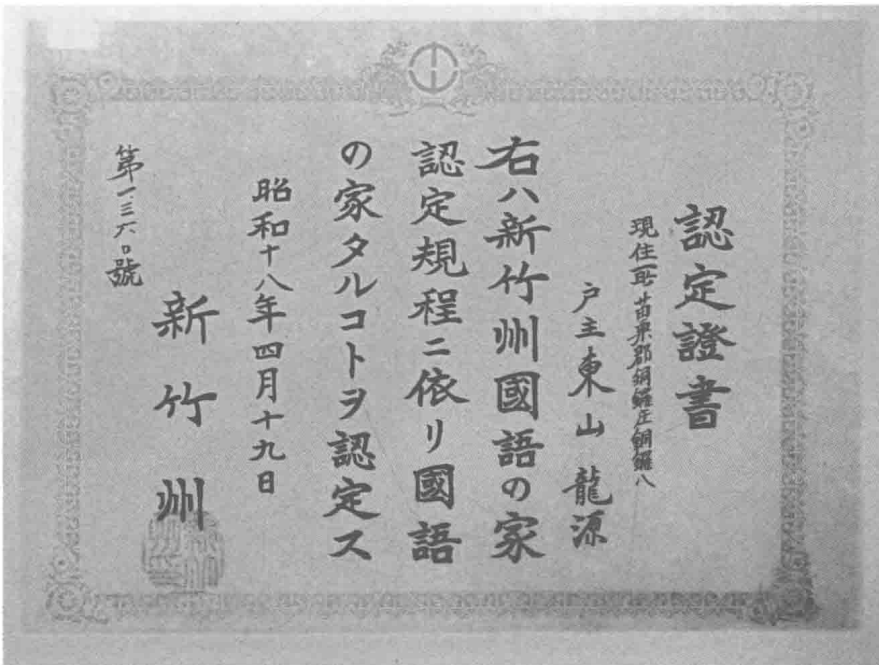 認定證書
現住所 苗栗郡銅鑼庄銅鑼八
戸主東山龍源
右ハ新竹州國語の家
認定規程ニ依リ國語
の家タルコトヲ認定ス
昭和十八年四月十九日
新竹州
第一三六〇號